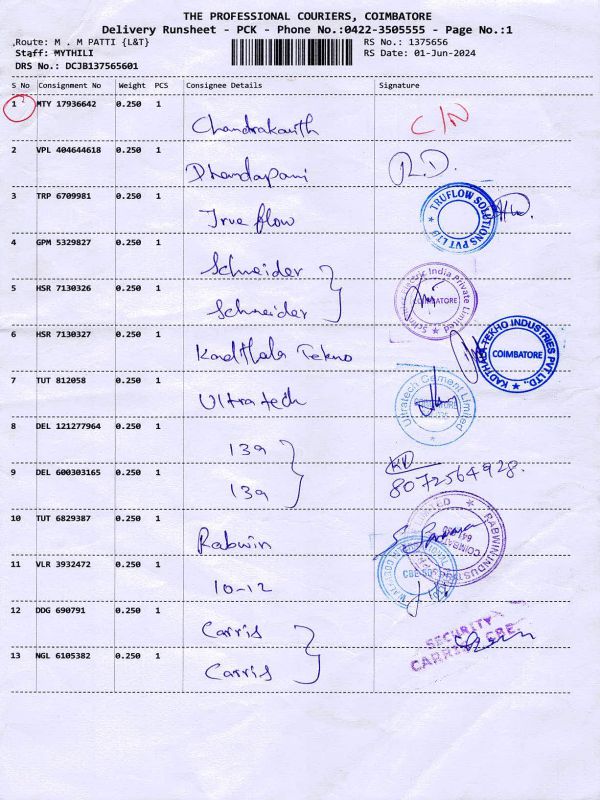 THE PROFESSIONAL COURIERS, COIMBATORE
Delivery Runsheet - PCK - Phone No.:0422-3505555 - Page No.:1
Route: M . M PATTI {L&T} RS No.: 1375656
Staff: MYTHILI RS Date: 01-Jun-2024
DRS No.: DCJB137565601
S No Consignment No Weight PCS Consignee Details Signature
1 MTY 17936642 0.250 1 Chandrakanth C/N
2 VPL 404644618 0.250 1 Dhandapani R.D.
3 TRP 6709981 0.250 1 True flow TRUFLOW SOLUTIONS PVT LTD
4 GPM 5329827 0.250 1 Schneider
5 HSR 7130326 0.250 1 Schneider Electric India Private Limited
6 HSR 7130327 0.250 1 Kadthala Tekno KADTHALA TEKHO INDUSTRIES PVT LTD., COIMBATORE
7 TUT 812058 0.250 1 Ultratech Ultratech Cement Limited
8 DEL 121277964 0.250 1 139
9 DEL 600303165 0.250 1 139 8072564928.
10 TUT 6829387 0.250 1 Rabwin RABWIN INDUSTRIES
11 VLR 3932472 0.250 1 10-12
12 DDG 690791 0.250 1 Carris SECURITY
13 NGL 6105382 0.250 1 Carris